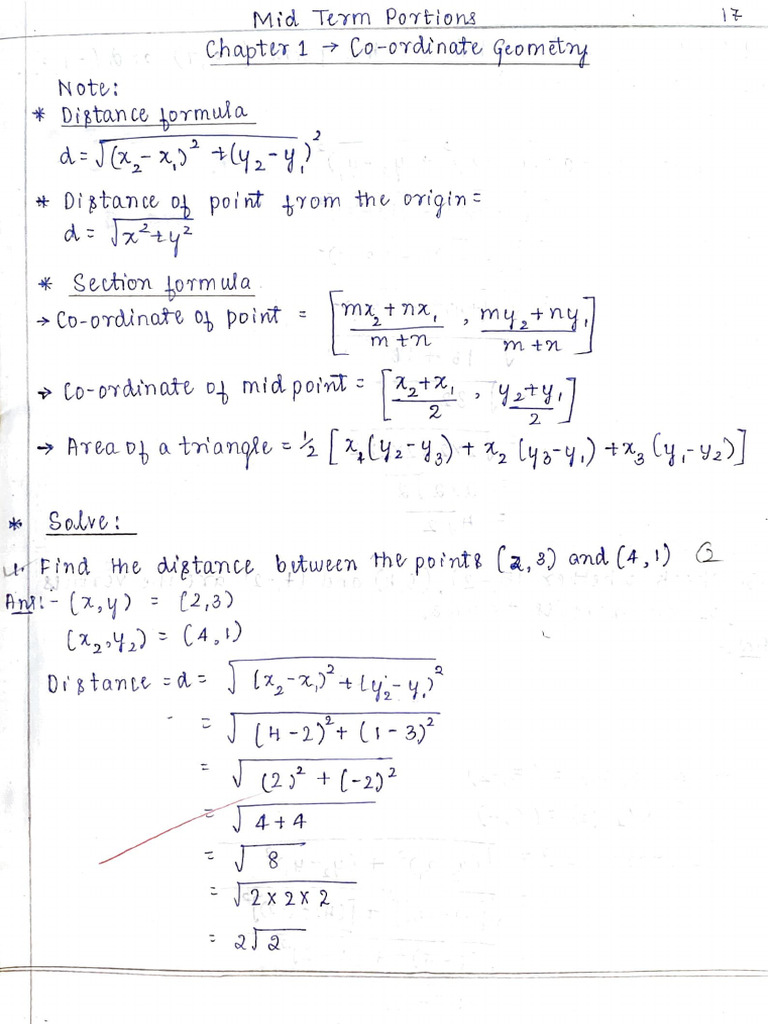 Mid Term Portions 17
Chapter 1 → Co-ordinate Geometry
Note:
* Distance formula
d = √(x₂ - x₁)² + (y₂ - y₁)²
* Distance of point from the origin =
d = √x² + y²
* Section formula
→ Co-ordinate of point = [mx₂ + nx₁ / m + n , my₂ + ny₁ / m + n]
→ Co-ordinate of mid point = [x₂ + x₁ / 2 , y₂ + y₁ / 2]
→ Area of a triangle = 1/2 [x₁(y₂ - y₃) + x₂ (y₃ - y₁) + x₃ (y₁ - y₂)]
* Solve:
1. Find the distance between the points (2,3) and (4,1) ②
Ans:- (x,y) = (2,3)
(x₂,y₂) = (4,1)
Distance = d = √(x₂ - x₁)² + (y₂ - y₁)²
= √(4-2)² + (1-3)²
= √(2)² + (-2)²
= √4+4
= √8
= √2×2×2
= 2√2